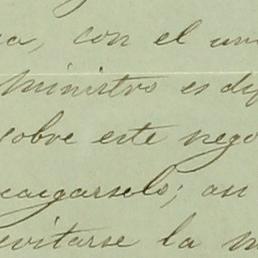 a, con el un
ministro es dif
sobre este nego
caigarselo; asi
evitarse la m